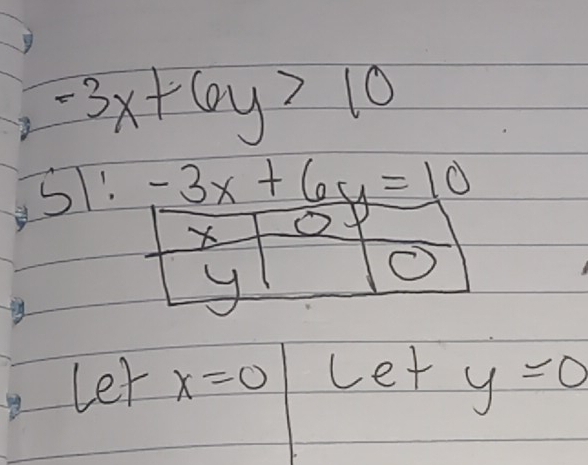 -3x+6y> 10
S1: -3x+6y=10
x 0
y 0
Let x=0 Let y=0